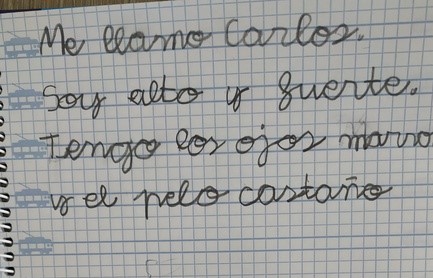 Me llamo Carlos.
Soy alto y fuerte.
Tengo los ojos marro
y el pelo castaño